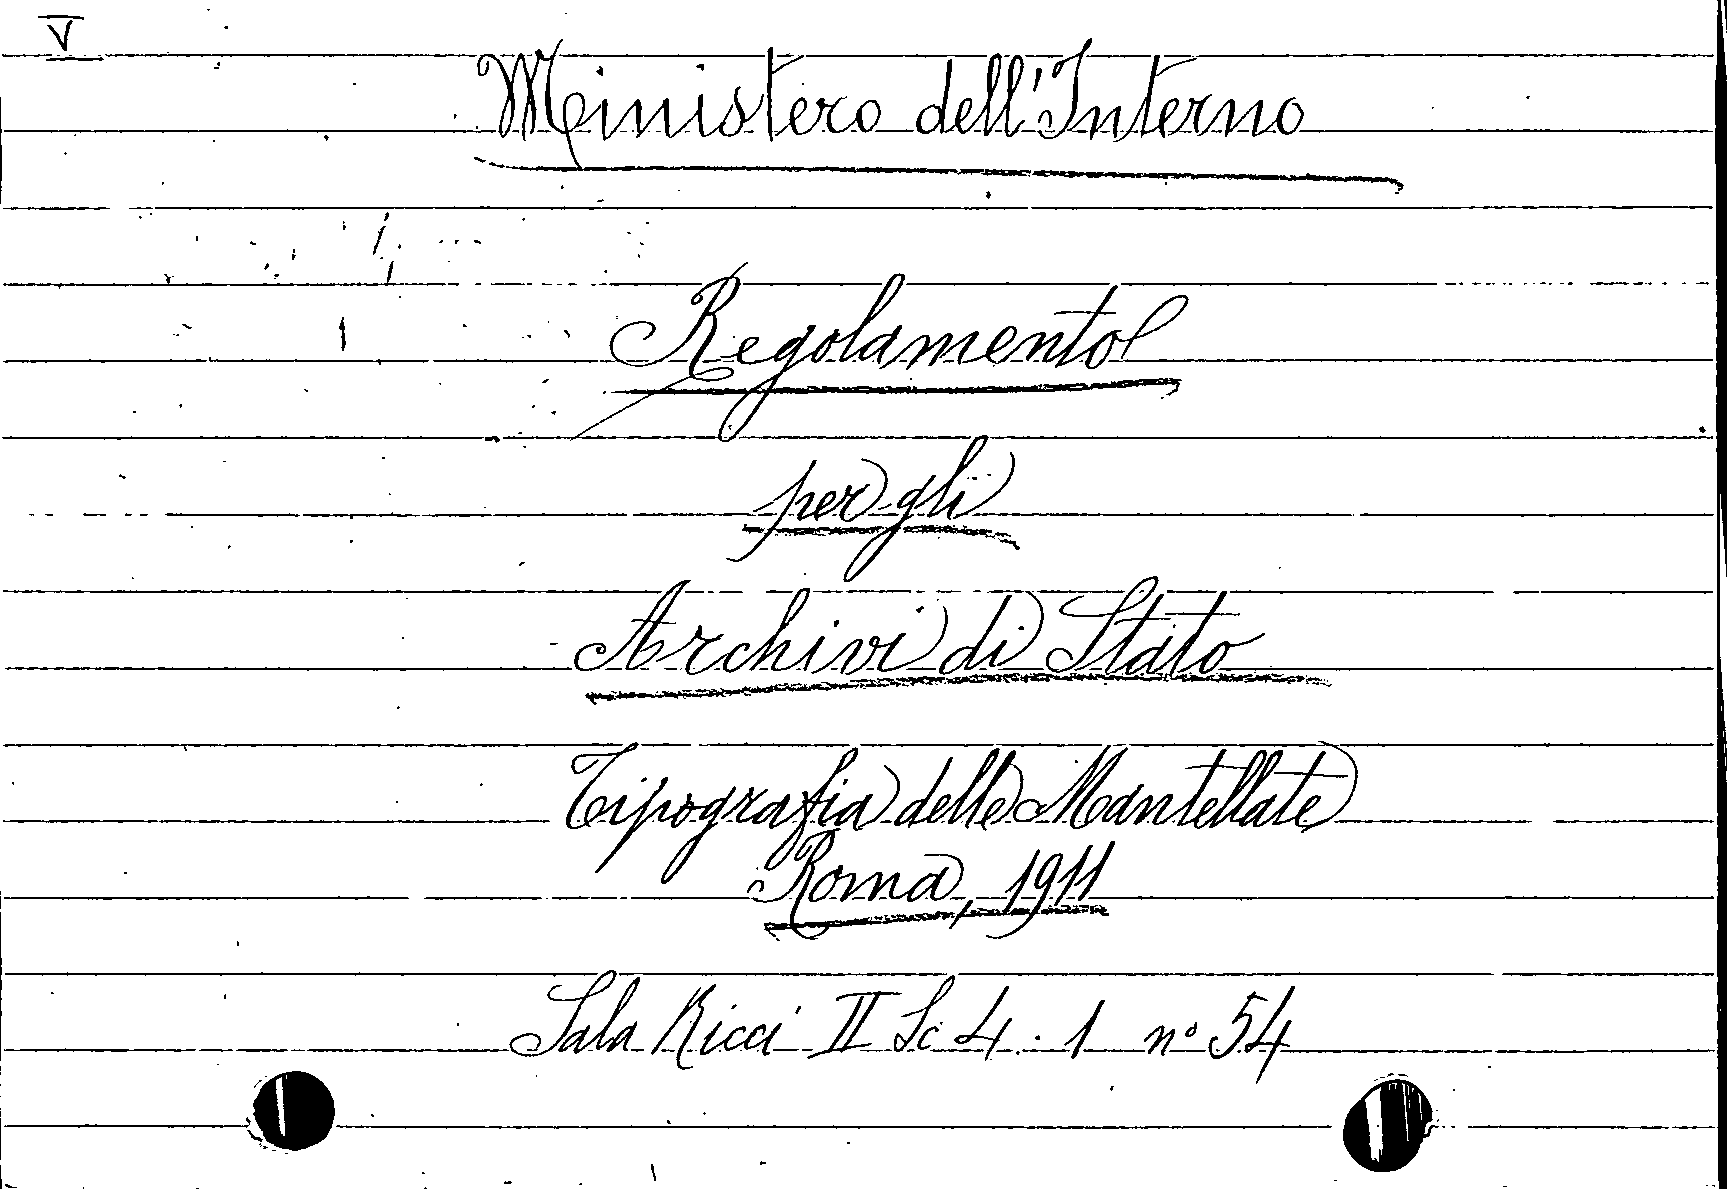 V
Ministero dell'Interno
Regolamento
per gli
Archivi di Stato
Tipografia delle Mantellate
Roma, 1911
Sala Ricci II Sc 4.1 nº 54